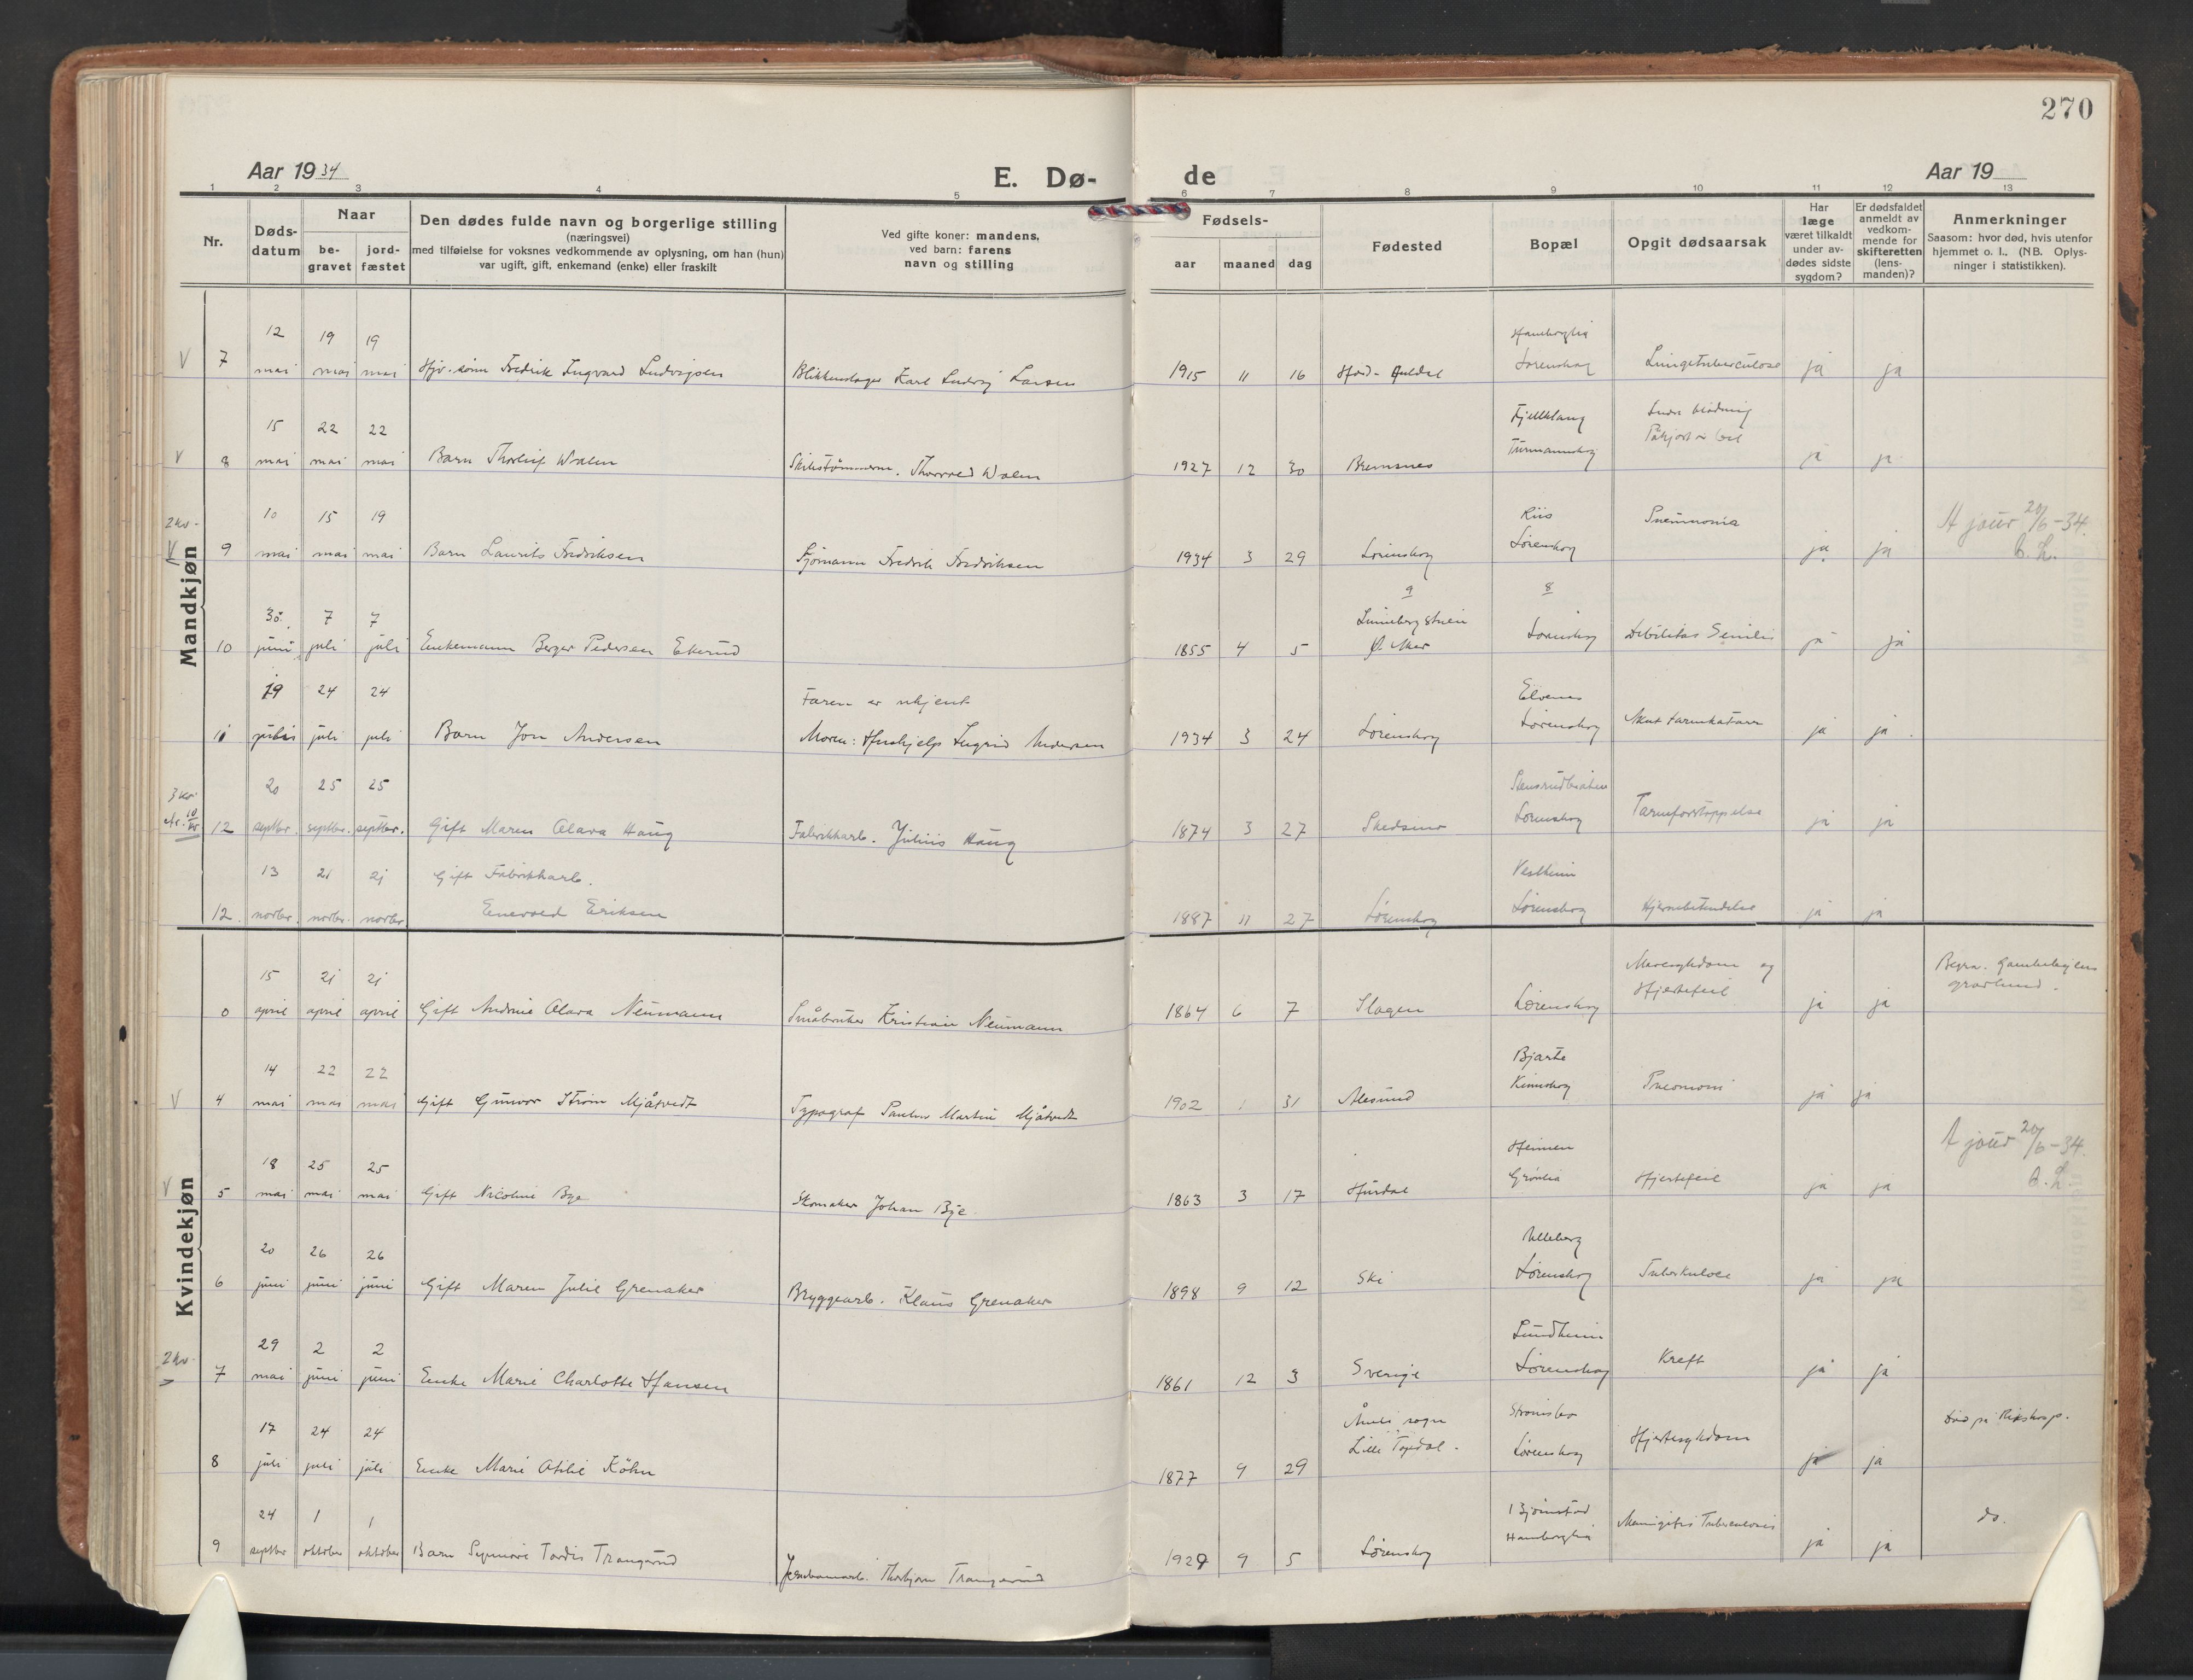 270
Aar 1934
E. Dø-
de
Aar 19
1 2 3 4 5 6 7 8 9 10 11 12 13
Nr.
Døds-
datum
Naar
be-
gravet
jord-
fæstet
Den dødes fulde navn og borgerlige stilling
(næringsvei)
med tilføielse for voksnes vedkommende av oplysning, om han (hun)
var ugift, gift, enkemand (enke) eller fraskilt
Ved gifte koner: mandens,
ved barn: farens
navn og stilling
Fødsels-
aar maaned dag
Fødested
Bopæl
Opgit dødsaarsak
Har
læge
været tilkaldt
under av-
dødes sidste
sygdom?
Er dødsfaldet
anmeldt av
vedkom-
mende for
skifteretten
(lens-
manden)?
Anmerkninger
Saasom: hvor død, hvis utenfor
hjemmet o. l., (NB. Oplys-
ninger i statistikken).
Mandkjøn
12 19 19 Hamborglia
V 7 mai mai mai Hjv. sønn Fredrik Ingvard Ludvigsen Blikkenslager Karl Ludvig Larsen 1915 11 16 Lørenskog Lungetuberculose ja ja
15 22 22 Fjellklang Indre blødning
V 8 mai mai mai Barn Thorleif Walen Thorvald Walen 1927 12 30 Bremsnes Påkjørt av bil ja ja
10 15 19 Riis Pneumonia A jour 20/6-34.
V 9 mai mai mai Barn Laurits Fredriksen Sjømann Fredrik Fredriksen 1934 3 29 Lørenskog Lørenskog ja ja
9 8
30. 7 7
10 juni juli juli Enkemann Berger Pedersen Ekerud 1855 4 5 Ø. Aker Lørenskog Debilitas Senilis ja ja
19 24 24 Faren er ukjent Elvenes
11 juli juli juli Barn Jon Andersen Moren: Hushjelp Ingrid Andersen 1934 3 24 Lørenskog Lørenskog Akut tarmkatarr ja ja
3 kv.
20 25 25 Stensrudbråten
12 septbr. septbr. septbr. Gift Maren Olava Haug Fabrikkarb. Julius Haug 1874 3 27 Skedsmo Lørenskog Tarmforstoppelse ja ja
13 21 21 Gift Fabrikkarb. Vestheim
12. novbr. novbr. novbr Enevold Eriksen 1887 11 27 Lørenskog Lørenskog Hjernebetendelse ja ja
Kvindekjøn
15 21 21 Mavesykdom og Begr. Gamlebyens
0 april april april Gift Andrine Olava Neumann Småbruker Kristian Neumann 1864 6 7 Slagen Lørenskog Hjertefeil ja ja gravlund.
14 22 22 Bjarte
V 4 mai mai mai Gift Gunvor Strøm Mjåtvedt Typograf Martin Mjåtvedt 1902 1 31 Ålesund Pneumoni ja ja
18 25 25 Heimen A jour 20/6-34.
V 5 mai mai mai Gift Nicoline Bye Skomaker Johan Bye 1863 3 17 Hurdal Grønlia Hjertefeil ja ja
20 26 26 Ulleberg
6 juni juni juni Gift Maren Julie Grenaker Bryggearb. Klaus Grenaker 1898 9 12 Ski Lørenskog Tuberkulose ja ja
2 kv.
29 2 2 Lundheim
7 mai juni juni Enke Marie Charlotte Hansen 1861 12 3 Sverige Lørenskog Kreft ja ja
17 24 24 Åmli sogn Strømsbo Død på Rikshosp.
8 juli juli juli Enke Marie Otilie Köhn 1877 9 29 Lille Topdal. Lørenskog Hjertesykdom ja ja
24 1 1 Bjørnstad do.
9 septbr oktober oktober Barn Synnøve Tordis Trangerud Thorbjørn Trangerud 1929 9 5 Lørenskog Hamborglia Meningitis Tuberculosis ja ja